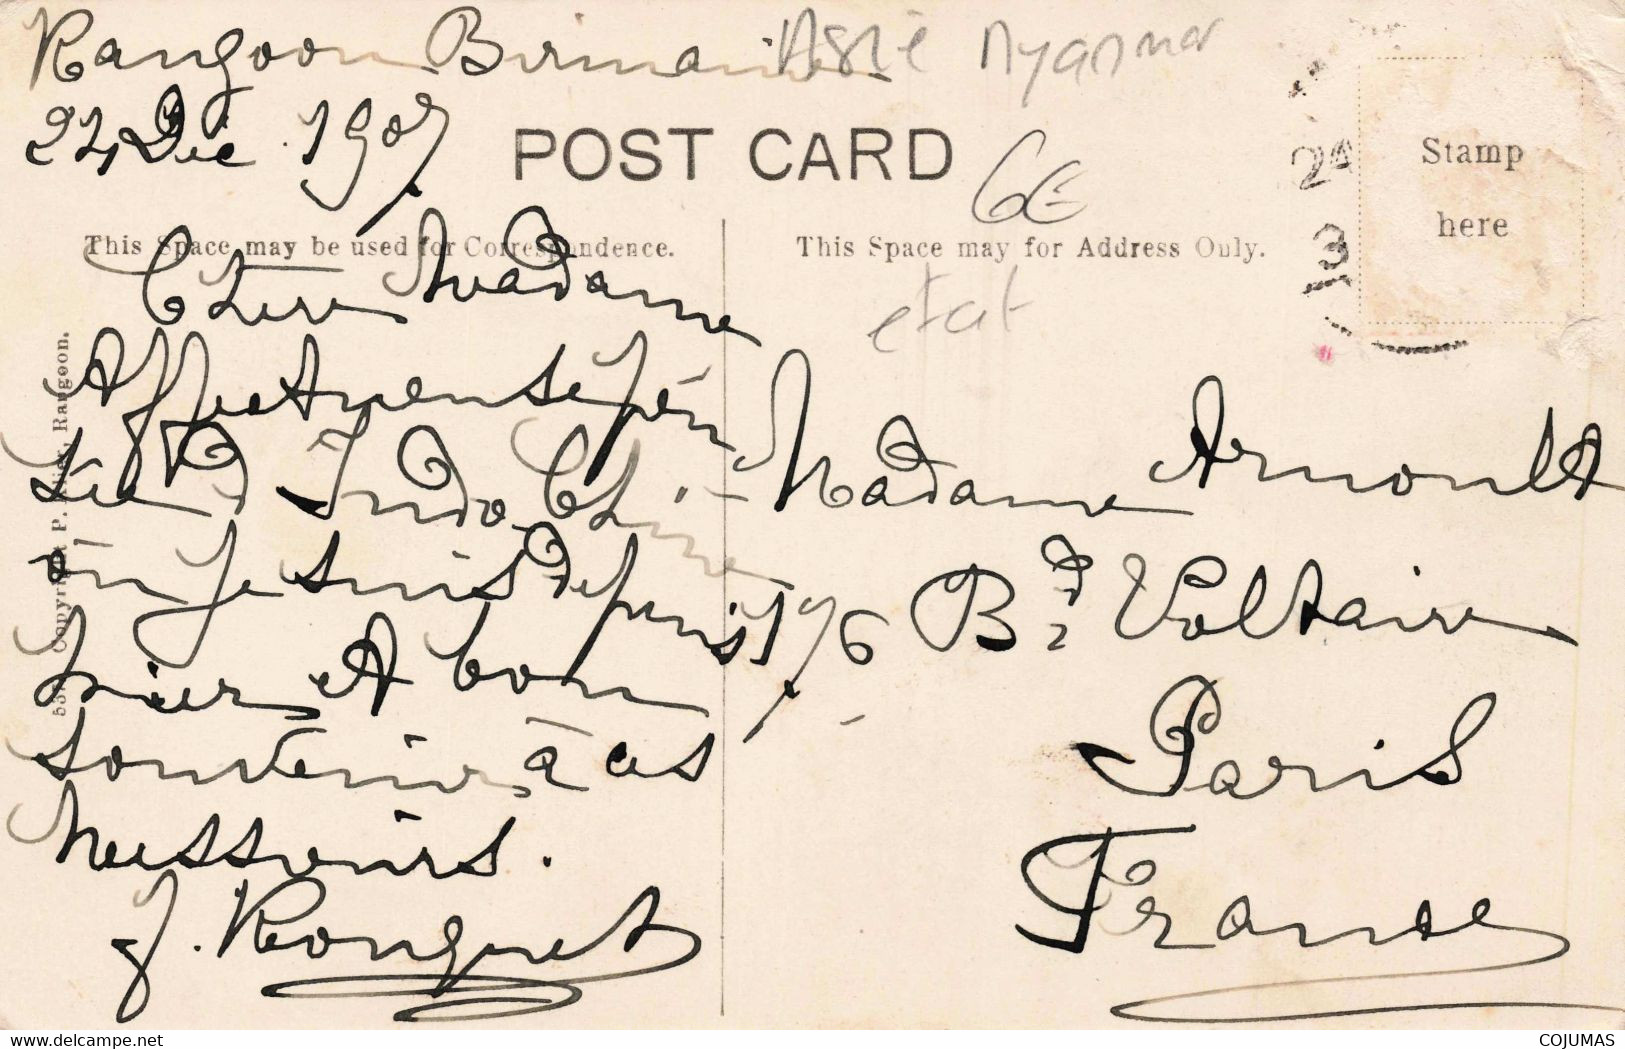 Rangoon Birmanie
Asie Myanmar
24 Dec. 1907
POST CARD
6€
24
13
Stamp
here
This Space may be used for Correspondence.
This Space may for Address Only.
etat
Chère Madame
Affectueuse
d'Indo Chine
où je suis depuis
hier et bon
souvenir à ces
Messieurs.
J. Rouquet
Madame Arnoult
176 Bd Voltaire
Paris
France
Copyright P. Klier, Rangoon.
delcampe.net
COJUMAS